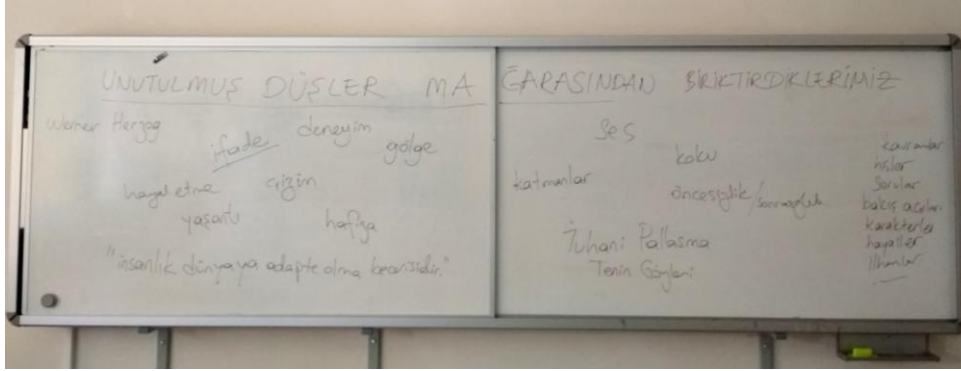 UNUTULMUŞ DÜŞLER MAĞARASINDAN BİRİKTİRDİKLERİMİZ
Werner Herzog
ifade
deneyim
gölge
hayal etme
çizim
yaşantı
hafıza
"insanlık dünyaya adapte olma becerisidir."
Ses
koku
katmanlar
öncesizlik/sonrasızlık
Juhani Pallasma
Tenin Gözleri
kavramlar
hisler
sorular
bakış açıları
karakterler
hayaller
ilhamlar